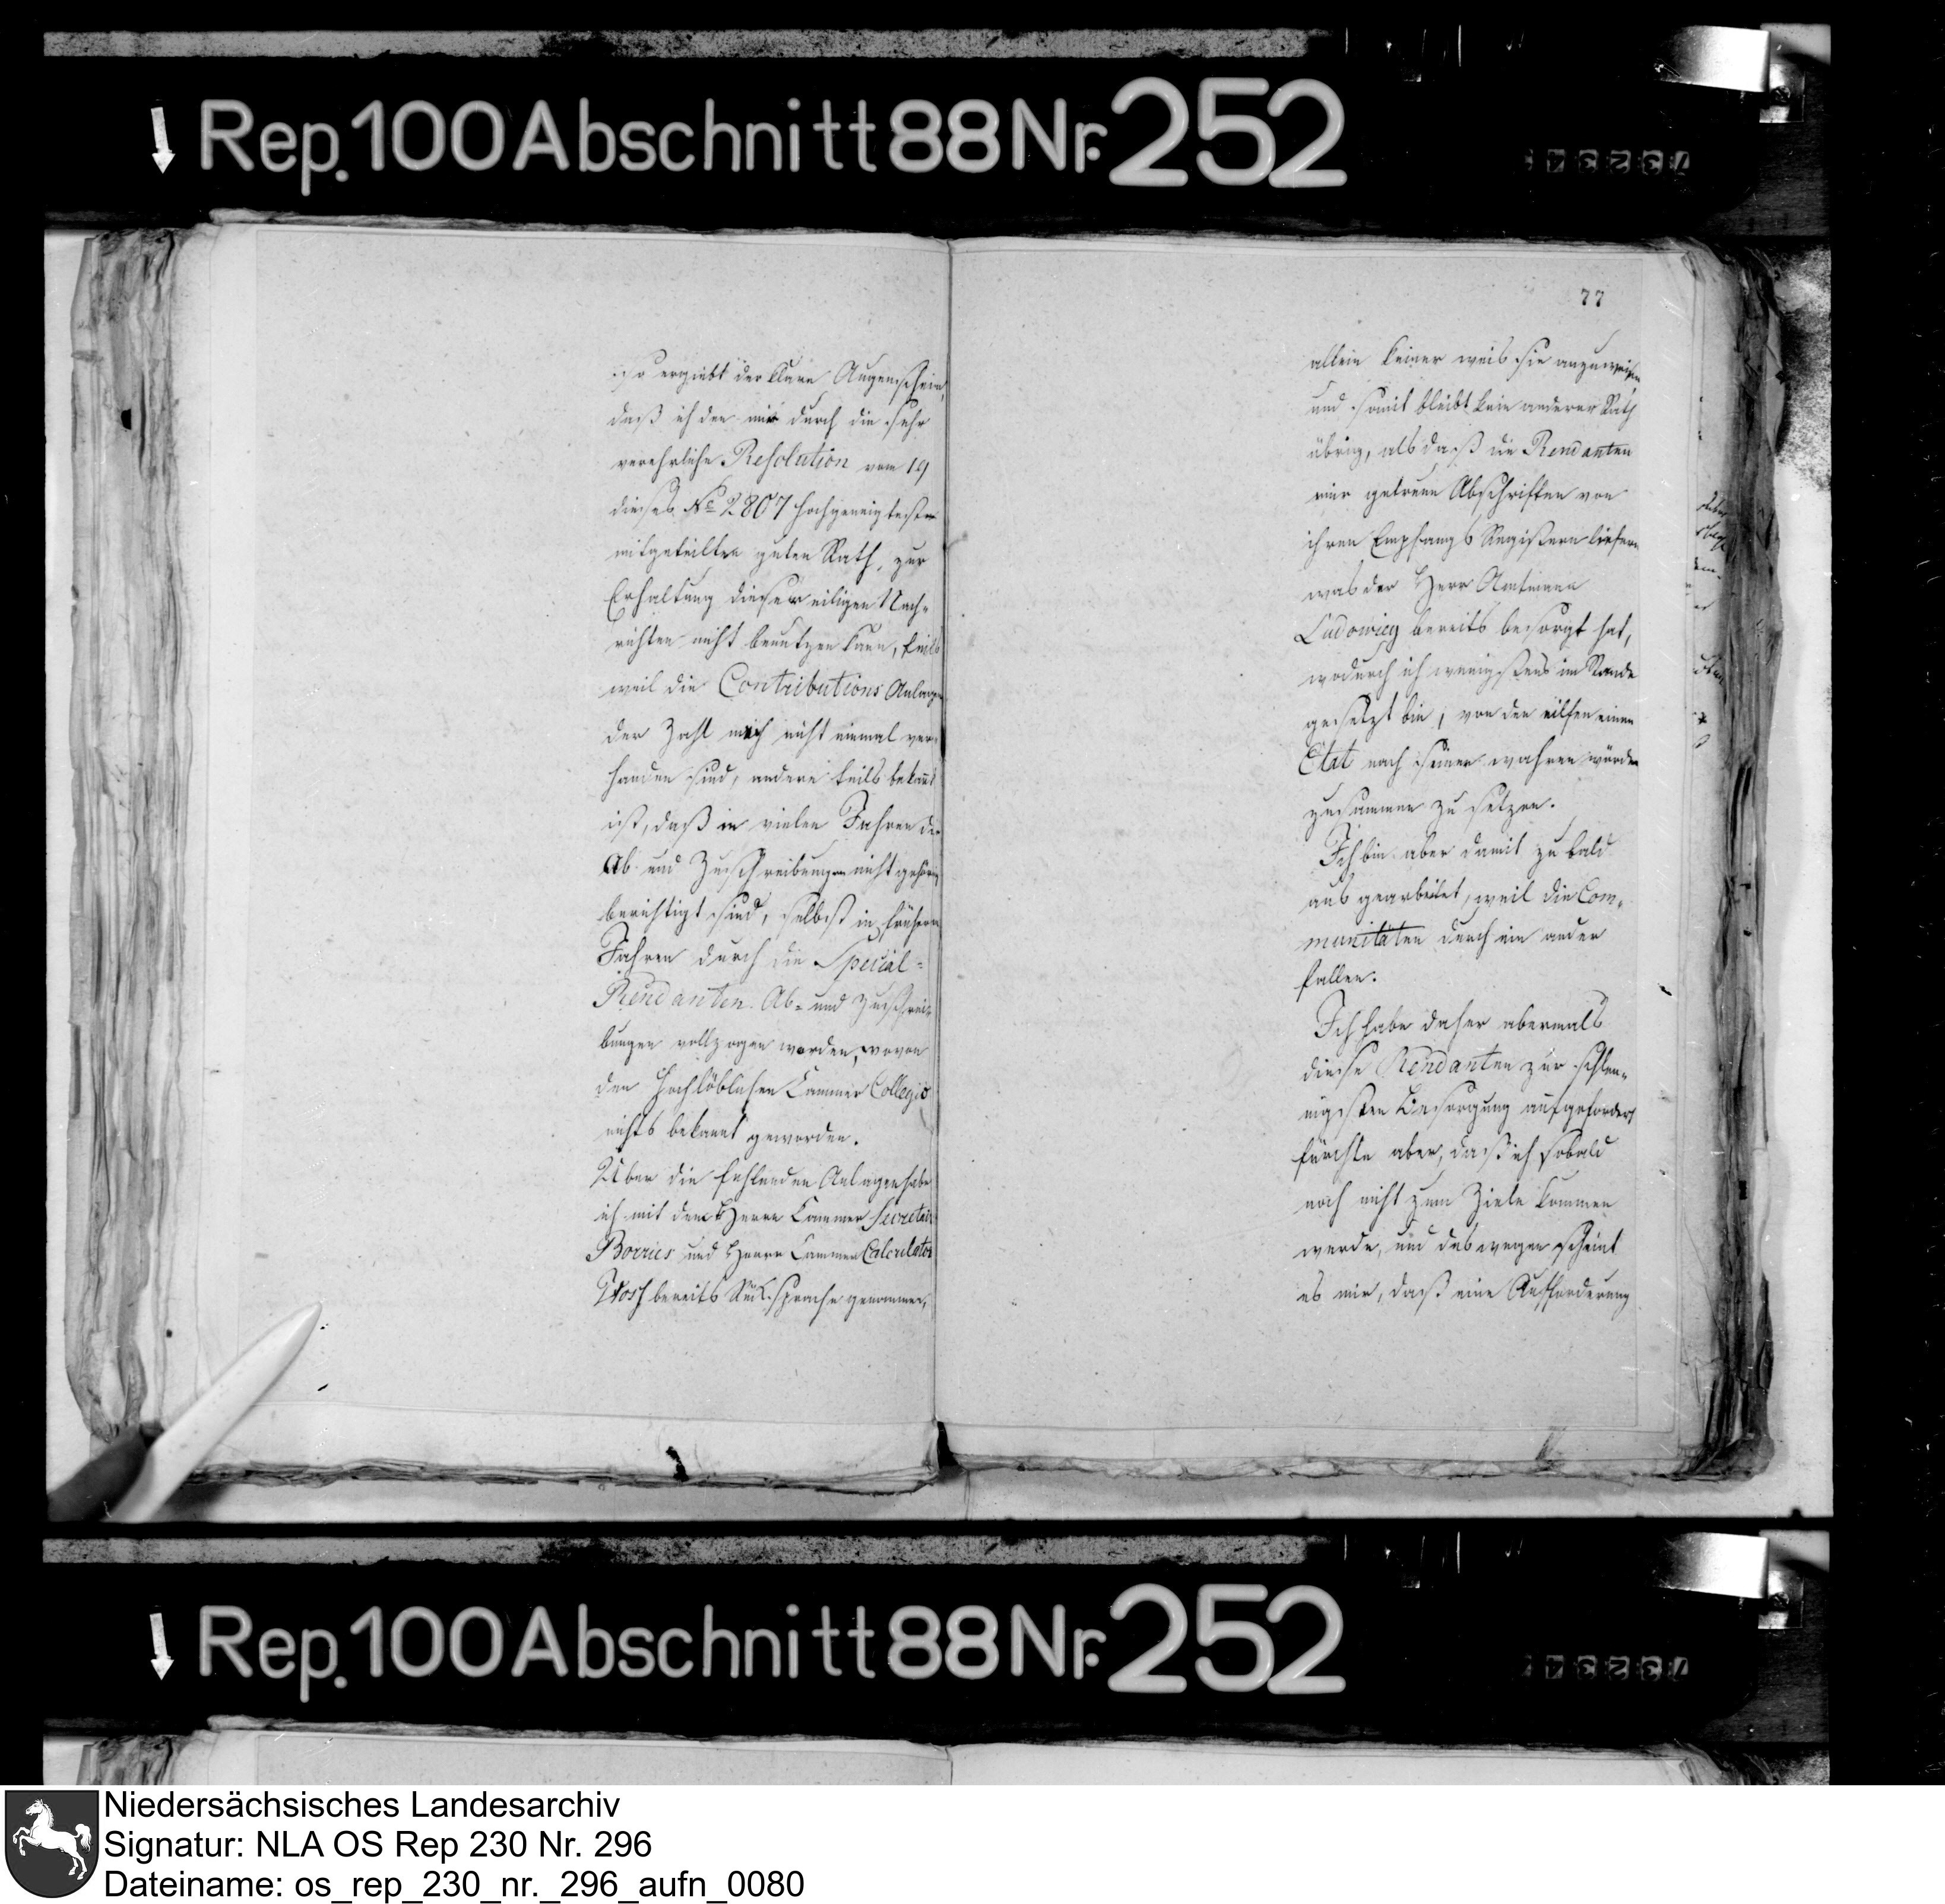 Rep. 100 Abschnitt 88 Nr. 252
73234
so ergiebt der klare Augenschein,
daß ich den mir durch die sehr
verehrliche Resolution vom 19
dieses No 2807 hochgeneigtest
mitgeteilten guten Rath, zur
Erhaltung dieser eiligen Nach-
richten nicht benutzen kann, theils
weil die Contributions Anlagen
der Zahl nach nicht einmal vor-
handen sind, andern theils bekannt
ist, daß in vielen Jahren die
Ab- und Zuschreibungen nicht gehörig
berichtigt sind, selbst in frühern
Jahren durch die Special-
Rendanten Ab- und Zuschrei-
bungen vollzogen worden, wovon
den Hochlöblichen Cammer Collegio
nichts bekannt geworden.
Über die fehlenden Anlagen habe
ich mit dem Herrn Cammer Secretair
Borries und Herrn Cammer Calculator
bereits Rücksprache genommen,
77
allein keiner weis sie anzuweisen
und somit bleibt kein anderer Rath
übrig, als daß die Rendanten
mir getreue Abschriften von
ihren Empfangs Registern liefern
was der Herr Amtmann
Ludowieg bereits besorgt hat,
wodurch ich wenigstens im Stande
gesetzt bin, von den eilfen einen
Etat nach seiner wahren würde
zusammen zu setzen.
Ich bin aber damit zu bald
aus gearbeitet, weil die Com-
munitäten durch ein ander
fallen.
Ich habe daher abermals
diese Rendanten zur schleu-
nigsten Besorgung aufgefordert
fürchte aber, daß ich sobald
noch nicht zum Ziele kommen
werde, und deswegen scheint
es mir, daß eine Aufforderung
Rep. 100 Abschnitt 88 Nr. 252
73234
Niedersächsisches Landesarchiv
Signatur: NLA OS Rep 230 Nr. 296
Dateiname: os_rep_230_nr._296_aufn_0080